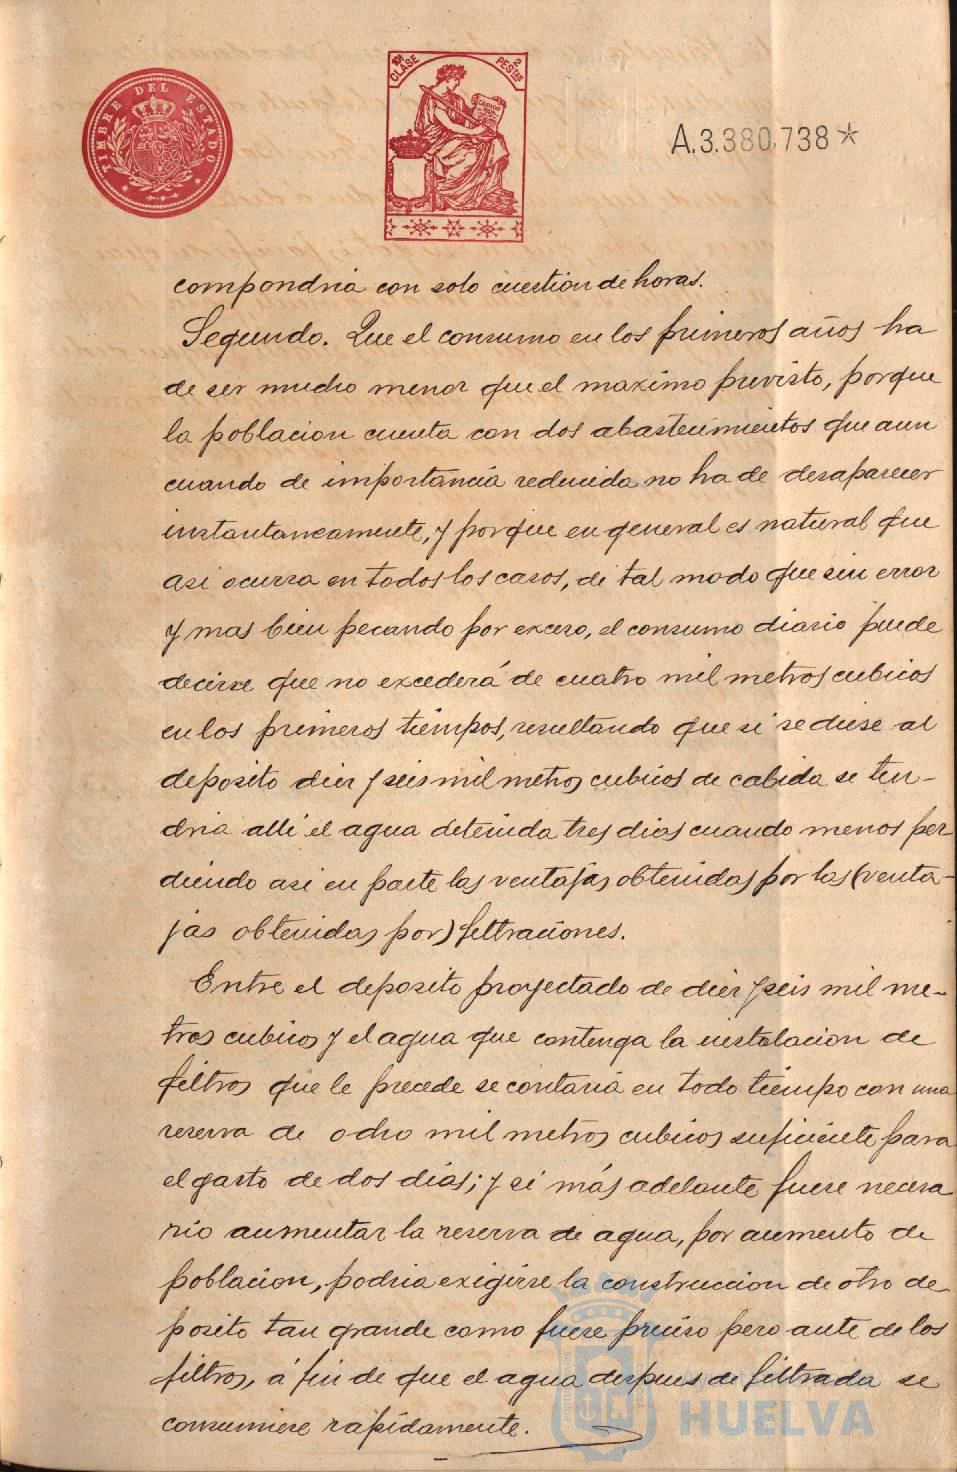 TIMBRE DEL ESTADO
10ª CLASE 2 PESTAS
CODIGO
A.3.380,738*
compondria con solo cuestion de horas.
Segundo. Que el consumo en los primeros años ha
de ser mucho menor que el maximo previsto, porque
la poblacion cuenta con dos abastecimientos que aun
cuando de importancia reducida no ha de desaparecer
instantaneamente, y porque en general es natural que
asi ocurra en todos los casos, de tal modo que sin error
y mas bien pecando por exceso, el consumo diario puede
decirse que no excederá de cuatro mil metros cubicos
en los primeros tiempos, resultando que si se diese al
deposito diez y seis mil metros cubicos de cabida se ten-
dria alli el agua detenida tres dias cuando menos per-
diendo asi en parte las ventajas obtenidas por las (venta-
jas obtenidas por) filtraciones.
Entre el deposito proyectado de diez y seis mil me-
tros cubicos y el agua que contenga la instalacion de
filtros que le precede se contaria en todo tiempo con una
reserva de ocho mil metros cubicos suficiente para
el gasto de dos dias; y si más adelante fuere necesa
rio aumentar la reserva de agua, por aumento de
poblacion, podria exigirse la construccion de otro de
posito tan grande como fuese preciso pero ante de los
filtros, á fin de que el agua despues de filtrada se
consumiese rapidamente.
HUELVA